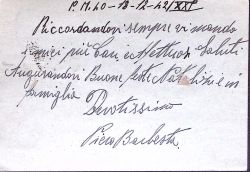 P.M. 40 - 18-12-42/XXI
Riccordandovi sempre vi mando
i miei più cari ed affettuosi saluti
Augurandovi Buone feste Natalizie in
famiglia
Devotissimo
Piero